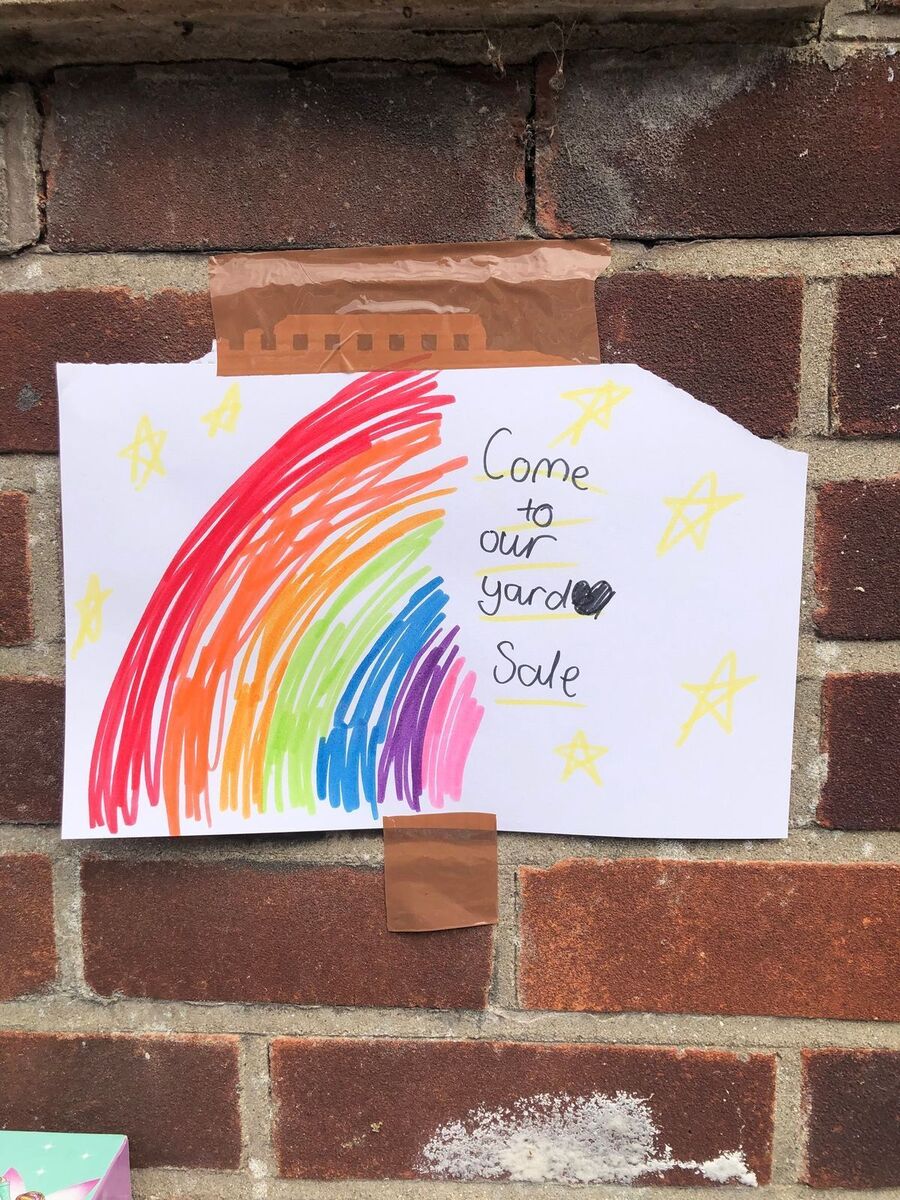 Come
to
our
yard🖤
Sale